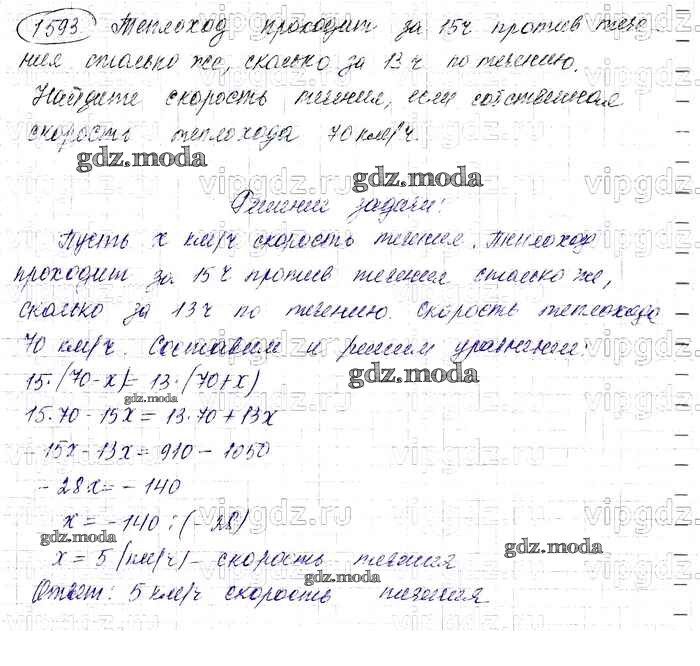 1593 Теплоход проходит за 15ч против тече-
ния столько же, сколько за 13ч по течению.
Найдите скорость течения, если собственная
скорость теплохода 70 км/ч.
gdz.moda
gdz.moda
Решение задачи:
Пусть x км/ч скорость течения. Теплоход
проходит за 15ч против течения столько же,
сколько за 13ч по течению. Скорость теплохода
70 км/ч. Составим и решим уравнение:
gdz.moda
15·(70-x)=13·(70+x)
gdz.moda
15·70-15x=13·70+13x
-15x-13x=910-1050
-28x=-140
x=-140:(-28)
gdz.moda
gdz.moda
x=5 (км/ч)- скорость течения
gdz.moda
Ответ: 5 км/ч скорость течения
vipgdz.ru